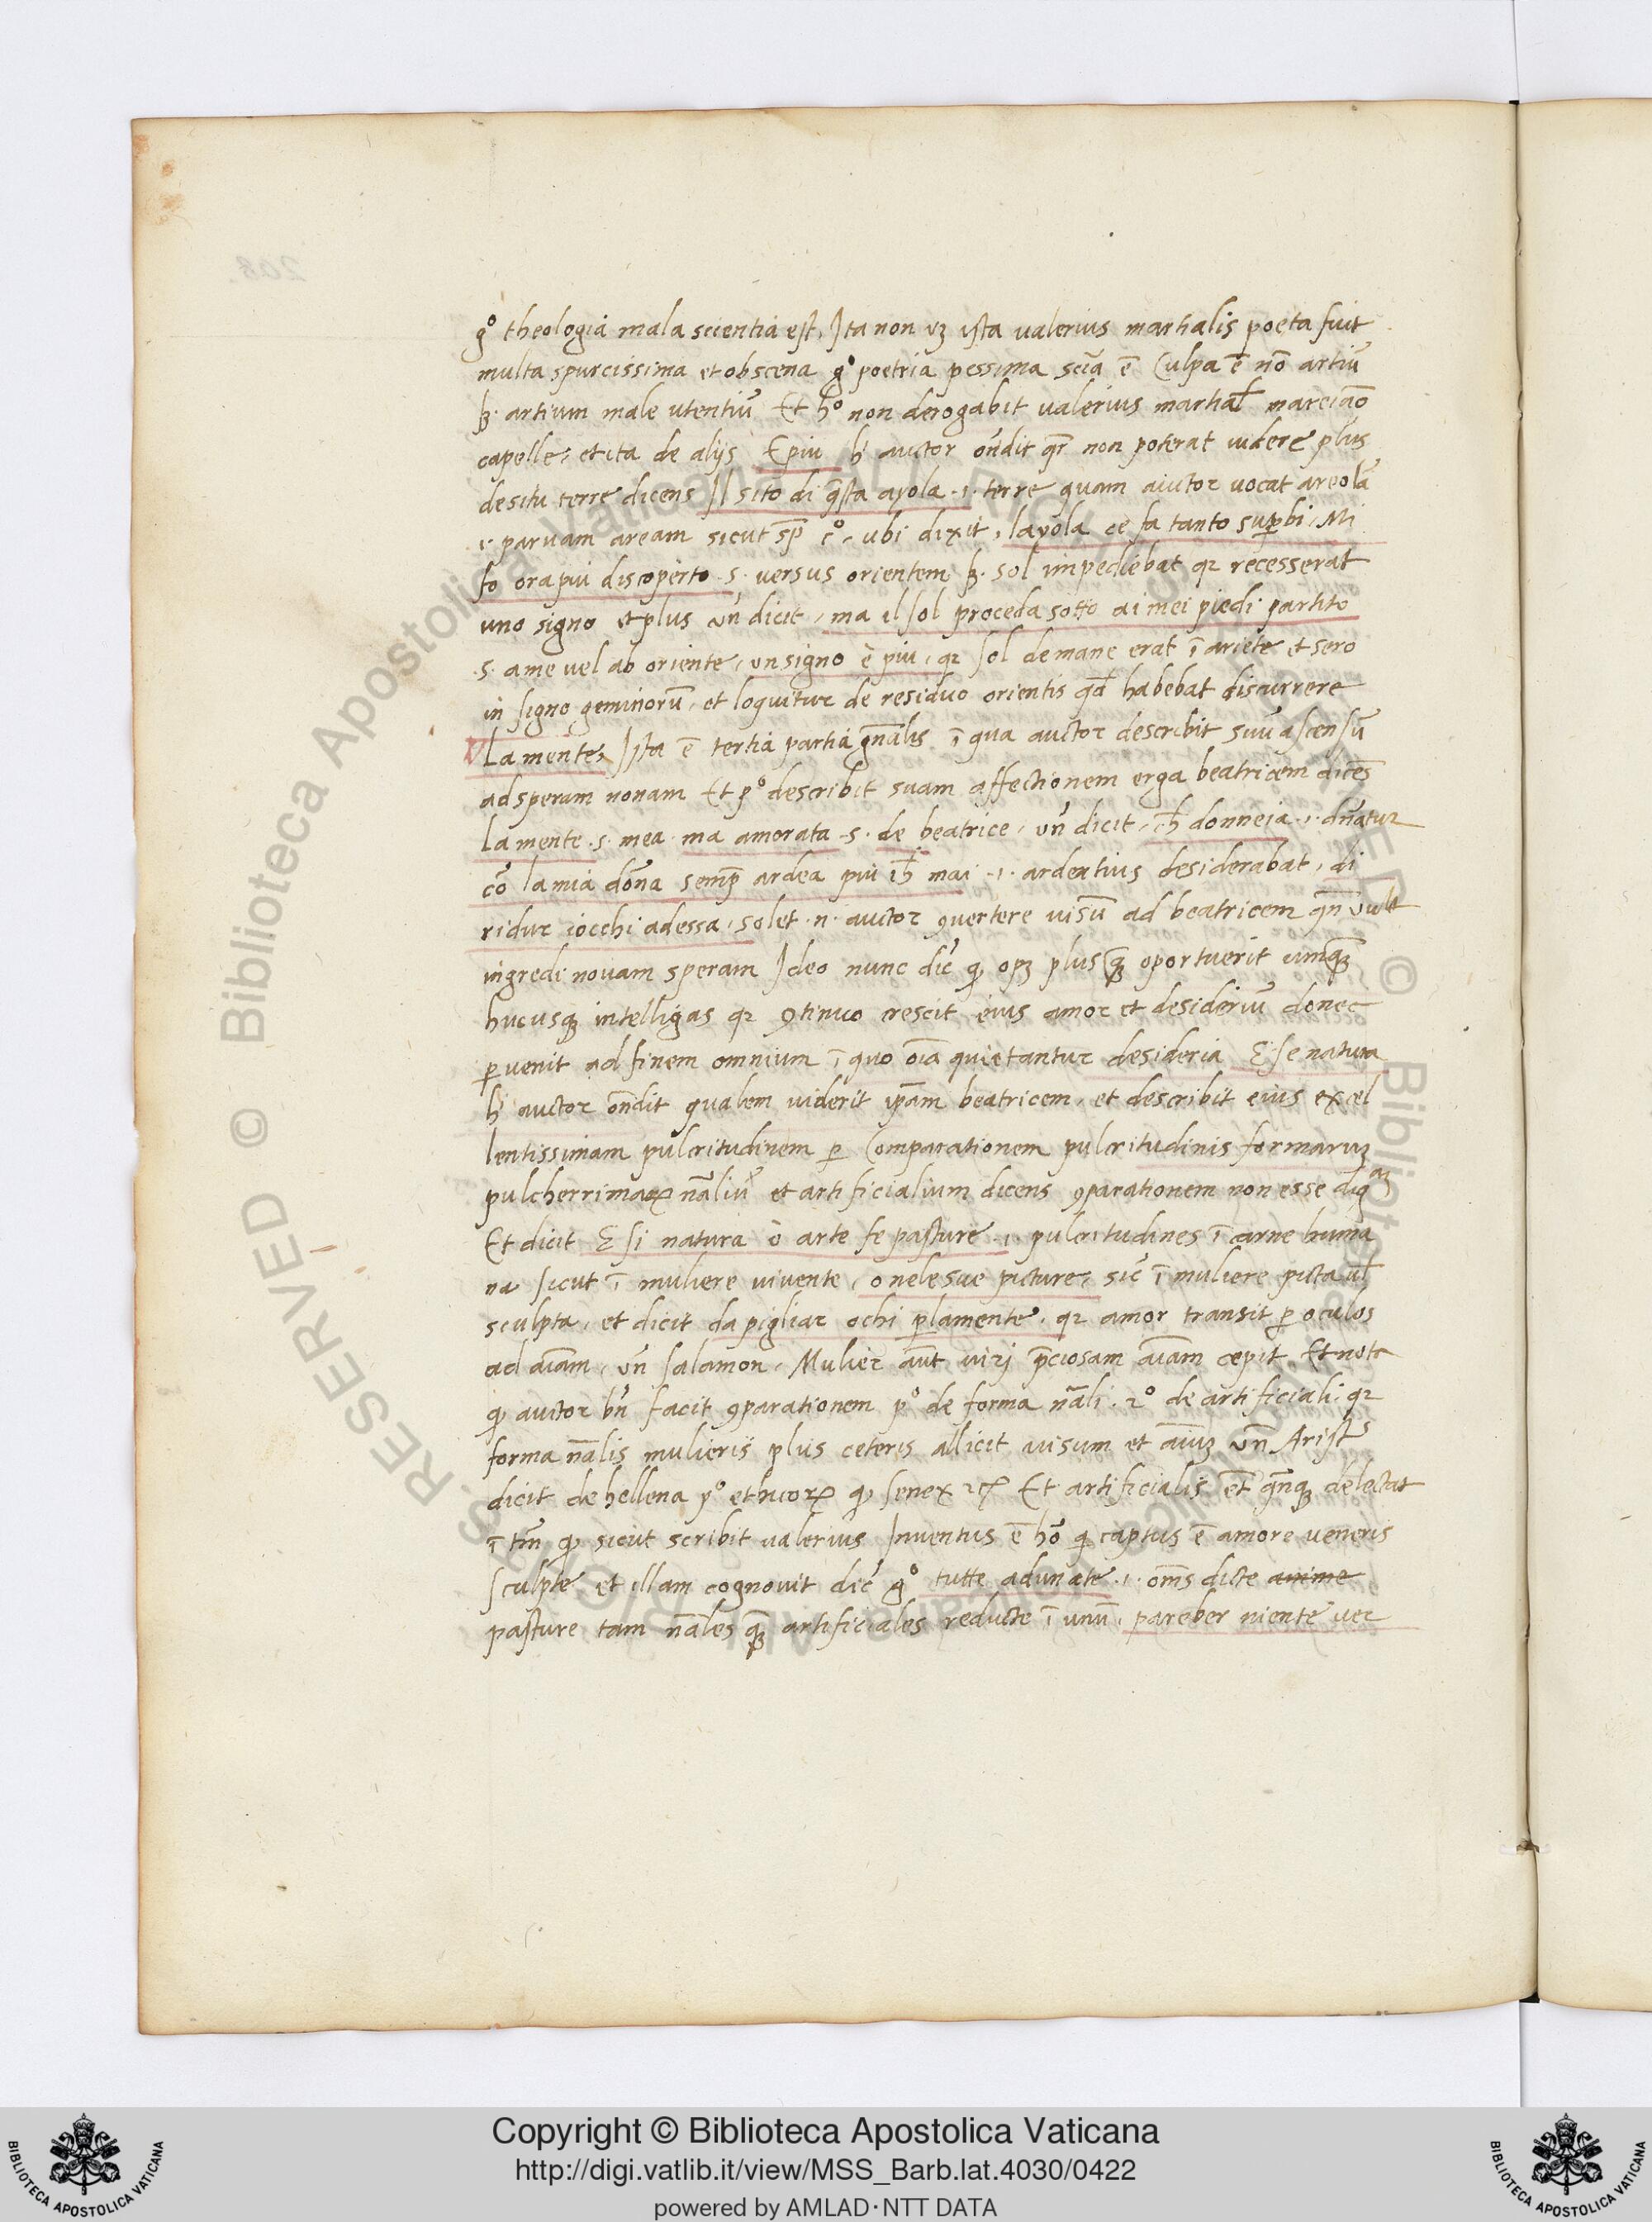 g° theologia mala scientia est, Ita non uꝫ ista valerius martialis poeta fuit
multa spurcissima et obscena g° poetria pessima sciā ē Culpa ē nō artiū
sꝫ. artium male utentiū Et h° non derogabit valerius martial̄ marciāo
capelle, et ita de alijs E piu h̄ auctor oñdit qr̄ non poterat videre plus
de situ terre dicens Il sito di q̄sta ayola .i. terre quam auctor uocat areolā
.i. paruam aream sicut sp̄ c°, ubi dixit, layola ce fa tanto sup̱bi, Mi
fo ora piu discoperto .s. versus orientem sꝫ. sol impediebat qꝛ recesserat
uno signo et plus uñ dicit, ma il sol proceda sotto ai mei piedi partito
.s. a me vel ab oriente, un signo è piu, qꝛ sol de mane erat ī ariete et sero
in signo geminorū, et loquitur de residuo orientis qd̄ habebat discurrere
La mente, Ista ē tertia partia gn̄alis ī qua auctor describit suū ascensū
ad speram nonam Et p° describit suam affectionem erga beatricem dicēs
La mente .s. mea ma amorata .s. de beatrice, uñ dicit, ch̄ donneia .i. dn̄atur
cō la mia dōna semp̱ ardea piu ch̄ mai .i. ardentius desiderabat, di
ridur iocchi ad essa, solet .n. auctor ꝯvertere visū ad beatricem qn̄ vult
ingredi nouam speram Ideo nunc dic̄ ꝙ opꝫ plusqꝫ oportuerit umqꝫ
hucusqꝫ intelligas qꝛ ꝯtinuo crescit eius amor et desideriū donec
ꝑuenit ad finem omnium ī quo oīa quietantur desideria E se natura
h̄ auctor ōndit qualem viderit ip̄am beatricem, et describit eius excel
lentissimam pulcritudinem ꝑ Comparationem pulcritudinis formaruꝫ
pulcherrimaꝝ nāliū et artificialium dicens ꝯparationem non esse digᵃᵐ
Et dicit E si natura ò arte fe pasture .i. pulcritudines ī carne huma
na sicut ī muliere vivente, o nele sue picture, sic̄ ī muliere picta ul̄
sculpta, et dicit da pigliar ochi ꝑ la mente, qꝛ amor transit ꝑ oculos
ad aīam, uñ salamon, Mulier aūt viri p̄ciosam aīam cepit. Et nota
ꝙ auctor bñ facit ꝯparationem p° de forma nāli .2° de artificiali qꝛ
forma nālis mulieris plus ceteris allicit uisum et aīuꝫ uñ Aristˢ
dicit de hellena p° ethicoꝝ ꝙ senex ꝛcꝫ Et artificialis ēt qn̄qꝫ delectat
ī tm̄ ꝙ sicut scribit valerius Inventus ē hō q̇ captus ē amore veneris
sculpte et illam cognovit dic̄ g° tutte adunate .i. om̄s dicte anime
pasture tam nāles qꝫ artificiales reducte ī unū, pareber niente ver
Copyright © Biblioteca Apostolica Vaticana
http://digi.vatlib.it/view/MSS_Barb.lat.4030/0422
powered by AMLAD·NTT DATA